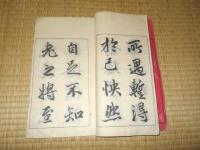 所遇暫得
於己怏然
自足不知
老之將至